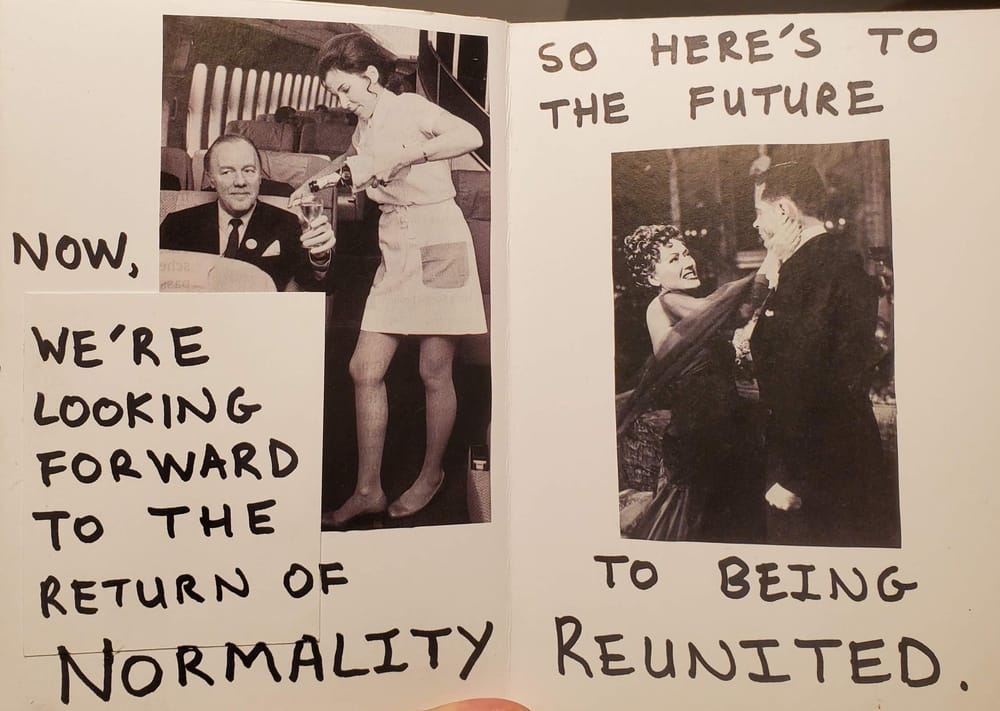 NOW,
WE'RE
LOOKING
FORWARD
TO THE
RETURN OF
NORMALITY
SO HERE'S TO
THE FUTURE
TO BEING
REUNITED.